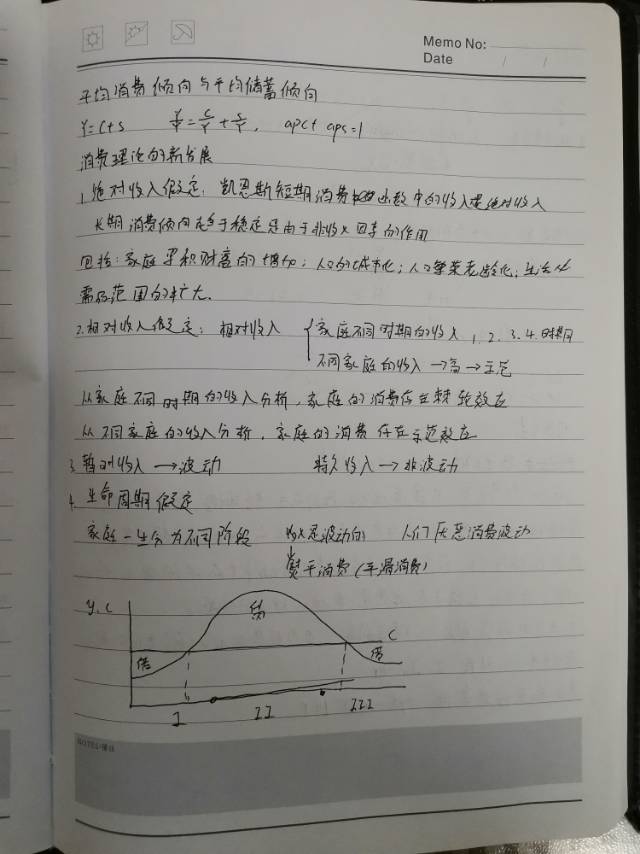 Memo No:
Date / /
平均消费倾向与平均储蓄倾向
Y=C+S Y/Y=C/Y+S/Y, apc+aps=1
消费理论的新发展
1.绝对收入假定:凯恩斯短期消费函数中的收入是绝对收入
长期消费倾向趋于稳定是由于非收入因素的作用
包括:家庭累积财富的增加;人口的城市化;人口繁荣老龄化;生活
需品范围的扩大.
2.相对收入假定:相对收入 { 家庭不同时期的收入 1.2.3.4.时期
不同家庭的收入→高→示范
从家庭不同时期的收入分析,家庭的消费存在棘轮效应
从不同家庭的收入分析,家庭的消费存在示范效应
3.暂时收入→波动 持久收入→非波动
4.生命周期假定
家庭一生分为不同阶段 收入是波动的 人们厌恶消费波动
↓
熨平消费(平滑消费)
Y.C
C
借 借
I II III
NOTES/备注